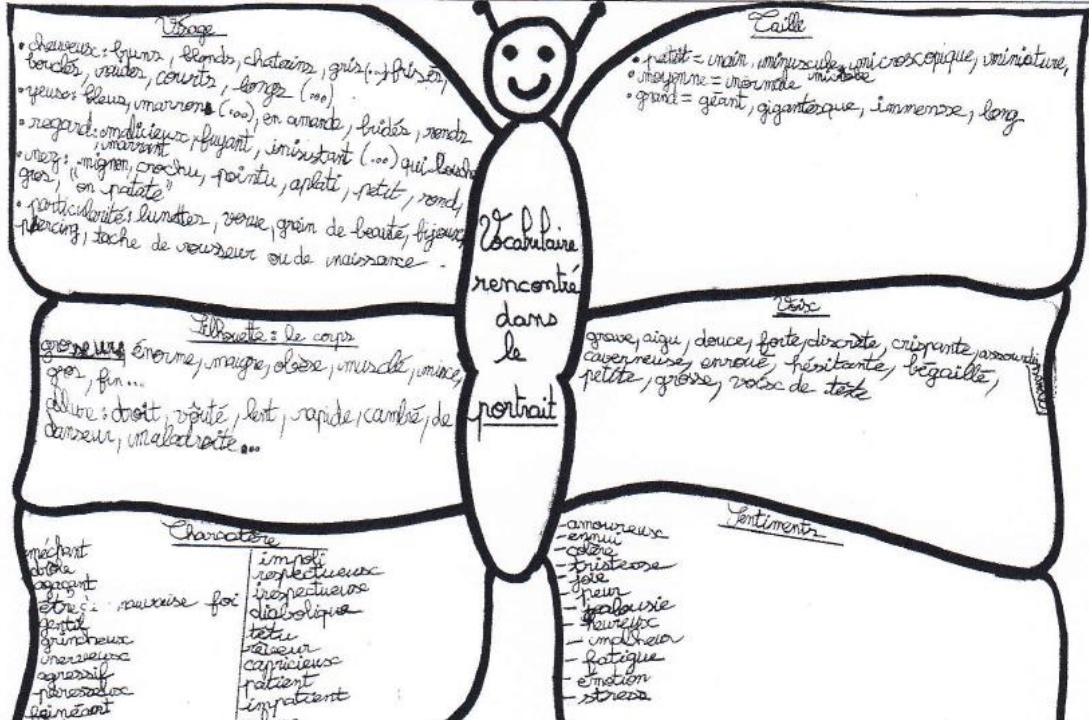 Visage
• cheuveux : bruns, blonds, chatains, gris (...) frisés,
bouclés, raides, courts, longs (...)
• yeux : bleus, marrons (...), en amande, bridés, ronds
• regard : malicieux, fuyant, insistant (...) qui louche
marrant
• nez : mignon, crochu, pointu, aplati, petit, rond,
gros, "en patate"
• particularité : lunettes, verrue, grain de beauté, bijoux,
piercing, tache de rousseur ou de naissance.
Taille
• petit = nain, minuscule, microscopique, miniature,
• moyenne = normale
• grand = géant, gigantesque, immense, long
Vocabulaire
rencontré
dans
le
portrait
Silhouette : le corps
énorme, maigre, obèse, musclé, mince,
gros, fin...
allure : droit, voûté, lent, rapide, cambré, de
danseur, maladroite...
Voix
grave, aigu, douce, forte, discrète, crispante,
caverneuse, enroué, hésitante, bégaillé,
petite, grosse, voix de tête
Charcatère
méchant
drôle
agaçant
être mauvaise foi
gentil
grincheux
nerveux
agressif
paresseux
impoli
respectueux
irespectueux
diabolique
têtu
rêveur
capricieux
patient
impatient
Sentiments
- amoureux
- ennui
- colère
- tristesse
- joie
- peur
- jealousie
- heureux
- malheur
- fatigue
- émotion
- stress